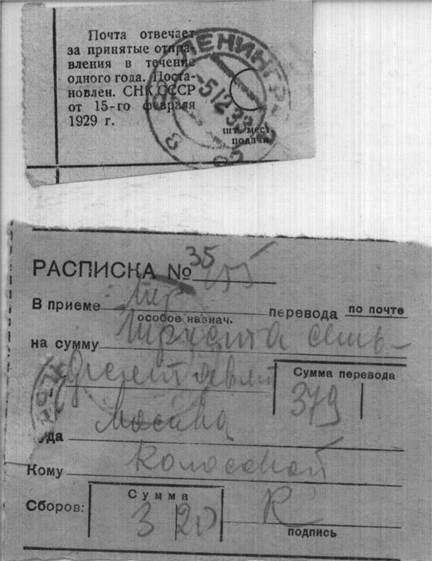 Почта отвечает
за принятые отпра-
вления в течение
одного года. Поста-
новлен. СНК СССР
от 15-го февраля
1929 г.
ЛЕНИНГР
5 12 33
шт. мест
подачи
РАСПИСКА № 35
В приеме перевода по почте
особое назнач.
на сумму Триста семь-
десят девят
Сумма перевода
379
уда Москва
Кому Колосовой
Сборов: Сумма
3 20
подпись